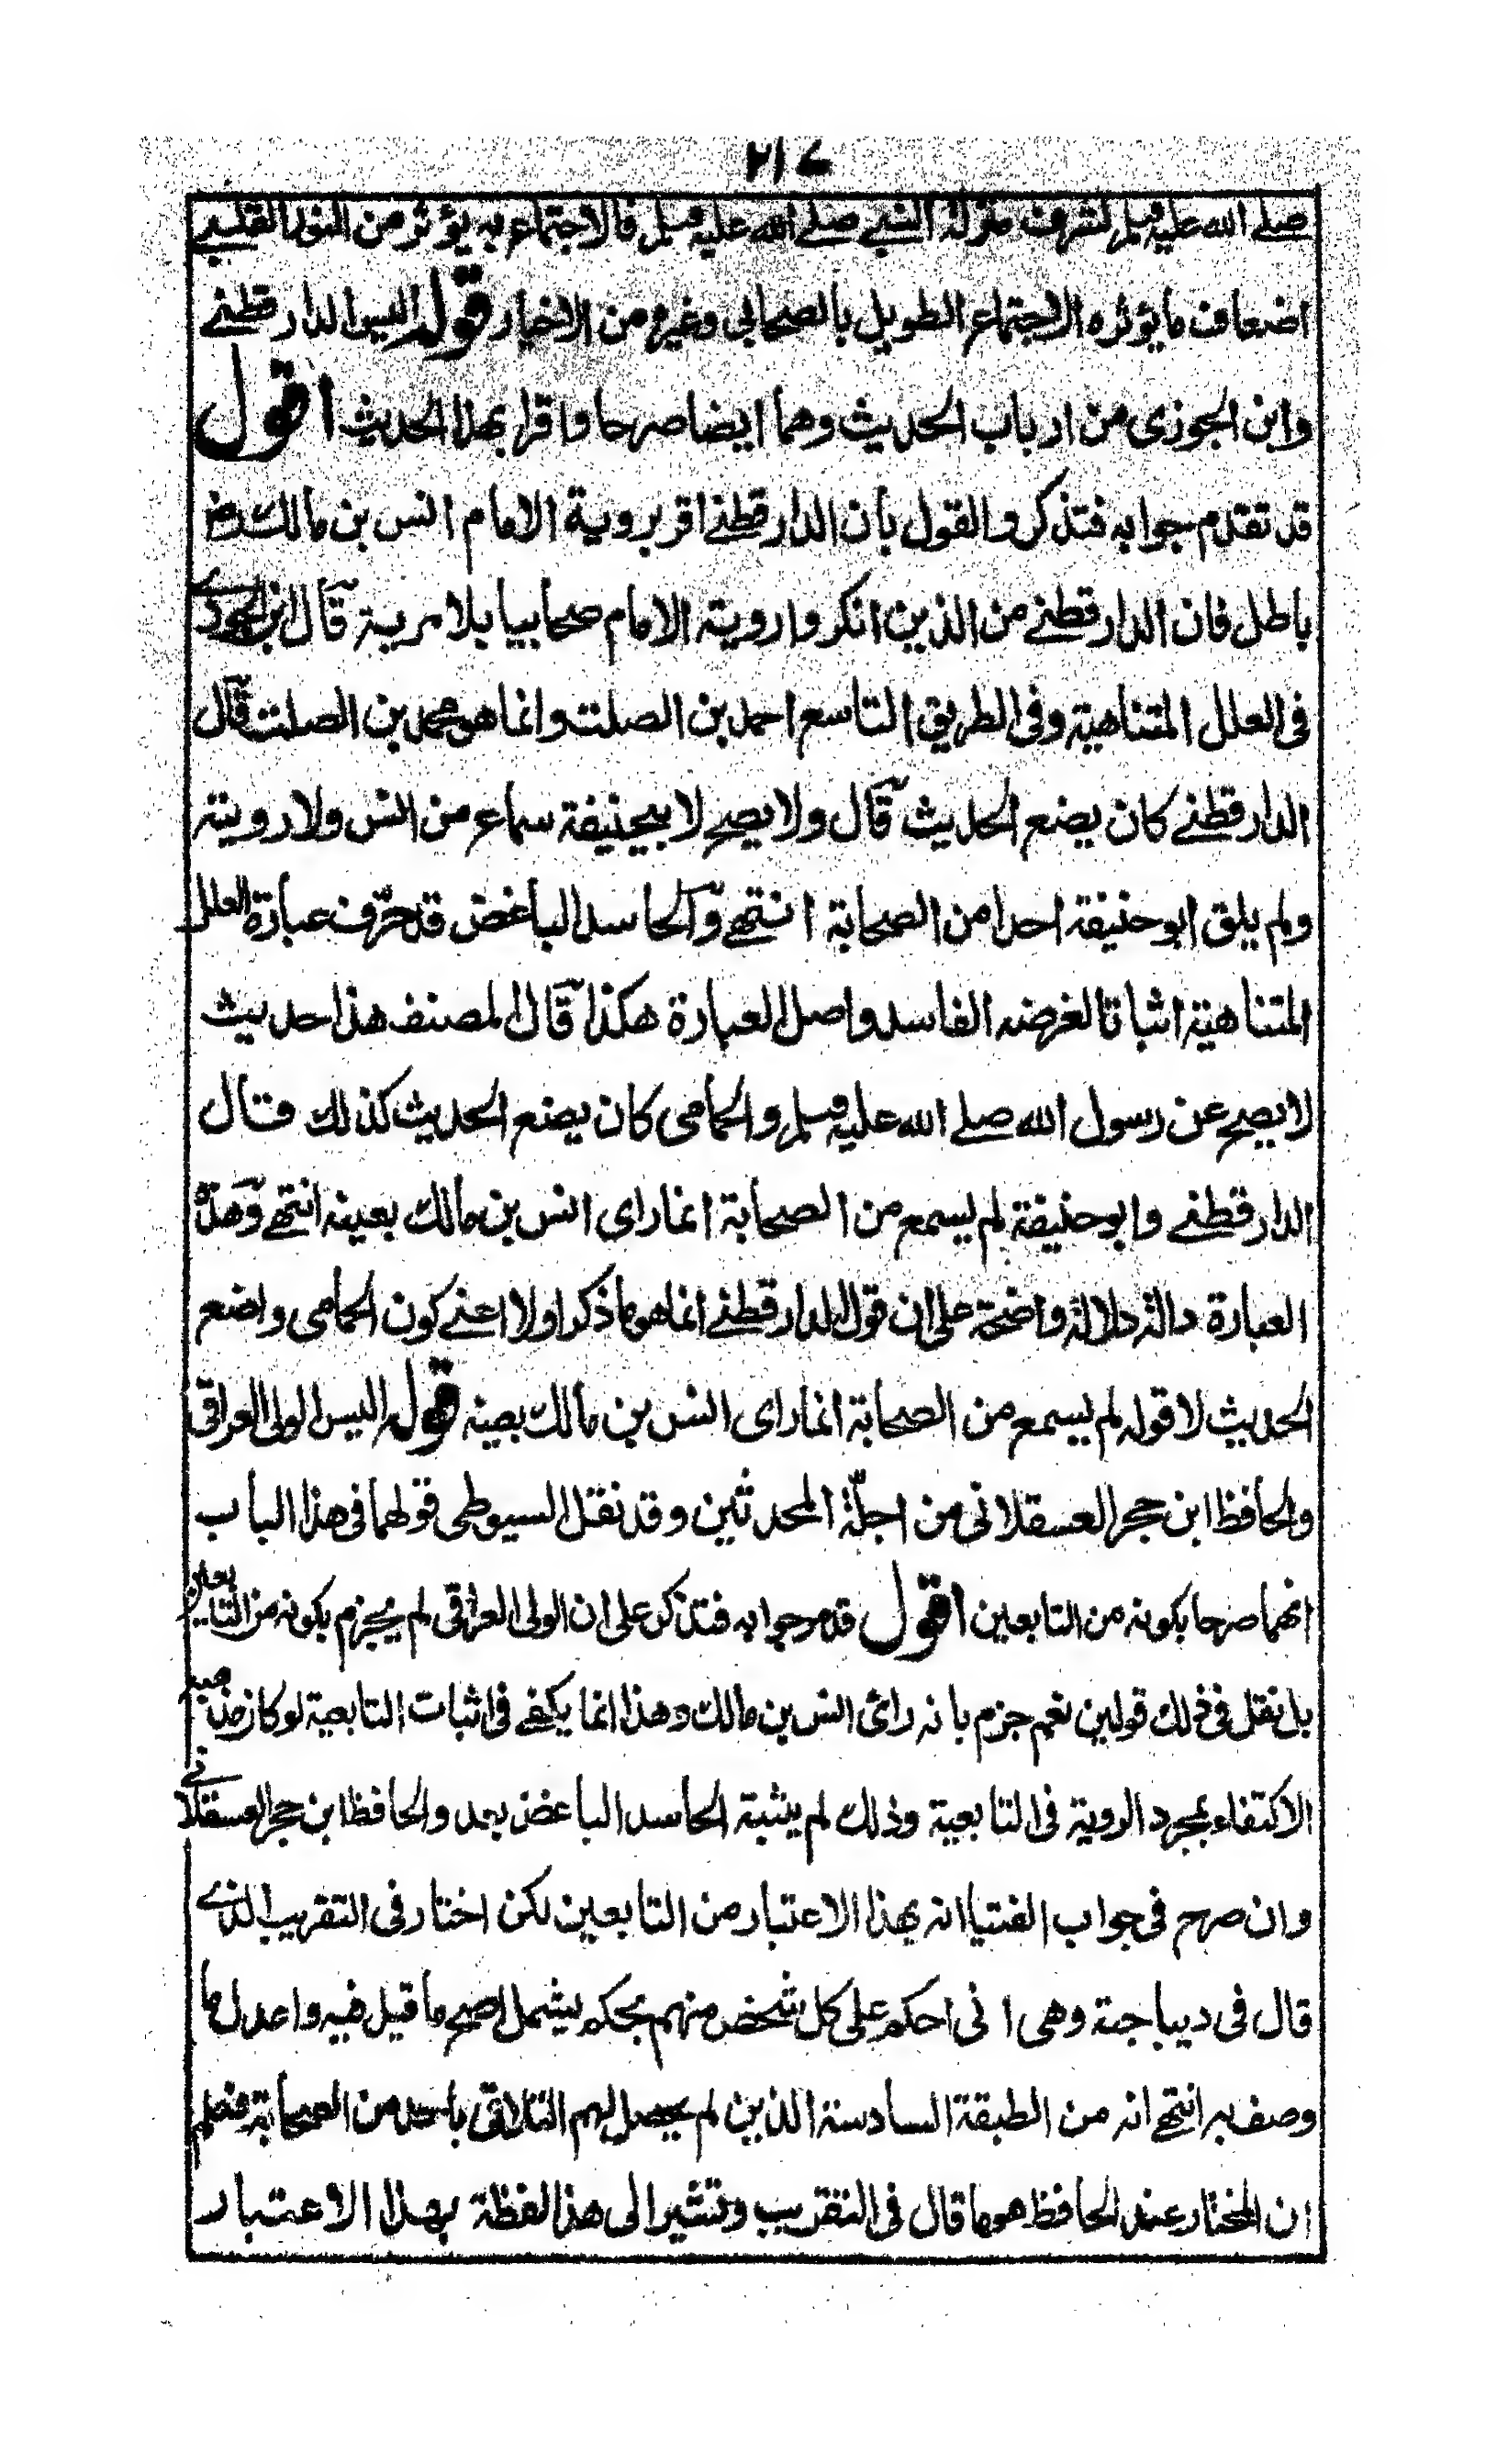 ٢١٤
صلے الله عليه وسلم لشرف منزلة النبي صلے الله عليه وسلم فالاجتماع به يؤثر من النور القلبي
اضعاف ما يؤثره الاجتماع الطويل بالصحابي وغيره من الاخيار قوله اليس الدار قطنے
وابن الجوزى من ارباب الحديث وهما ايضا صرحا واقرا بهذا الحديث اقول
قد تقدم جوابه فتذكر والقول بأن الدار قطنے اقر بروية الامام انس بن مالك رض
باطل فان الدار قطنے من الذين انكروا روية الامام صحابيا بلا مرية قال ابن الجوزے
فى العلل المتناهية وفى الطريق التاسع احمد بن الصلت وانما هو محمد بن الصلت قال
الدار قطنے كان يضع الحديث قال ولا يصح لابيحنيفة سماع من انس ولا رويته
ولم يلق ابو حنيفة احدا من الصحابة انتهے والحاسد الباغض قد حرّف عبارة العلل
المتناهية اثباتا لغرضه الفاسد واصل العبارة هكذا قال المصنف هذا حديث
لا يصح عن رسول الله صلے الله عليه وسلم والحمامى كان يضع الحديث كذلك قال
الدار قطنے وابو حنيفة لم يسمع من الصحابة انما راى انس بن مالك بعينه انتهے وهذه
العبارة دالة دلالة واضحة على ان قول الدار قطنے انما هو ما ذكر اولا اعنے كون الحمامى واضع
الحديث لا قوله لم يسمع من الصحابة انما راى انس بن مالك بعينه قوله اليس الولى العراقى
والحافظ ابن حجر العسقلانى من اجلّة المحدثين وقد نقل السيوطى قولهما فى هذا الباب
انهما صرحا بكونه من التابعين اقول قد مر جوابه فتذكر على ان الولى العراقى لم يجزم بكونه من التابعين
بل نقل فى ذلك قولين نعم جزم بانه رائ انس بن مالك وهذا انما يكفے فى اثبات التابعية لو كان مذهبه
الاكتفاء بمجرد الروية فى التابعية وذلك لم يثبته الحاسد الباغض بعد والحافظ ابن حجر العسقلانے
وان صرح فى جواب الفتيا انه بهذا الاعتبار من التابعين لكن اختار فى التقريب الذے
قال فى ديباجته وهى انى احكم على كل شخص منهم بحكم يشمل اصح ما قيل فيه واعدل ما
وصف به انتهے انه من الطبقة السادسة الذين لم يحصل لهم التلاقى بأحد من الصحابة فعلم
ان المختار عند الحافظ هو ما قال فى التقريب وتشير الى هذا لفظة بهذا الاعتبار